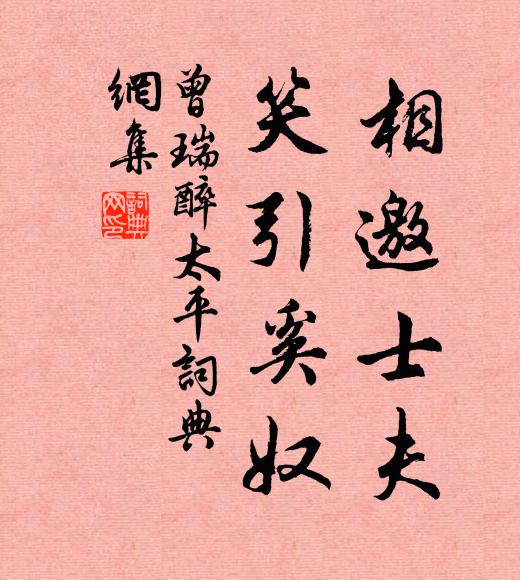 相邀士夫
笑引奚奴
曾瑞醉太平詞典
網集
詞典網印